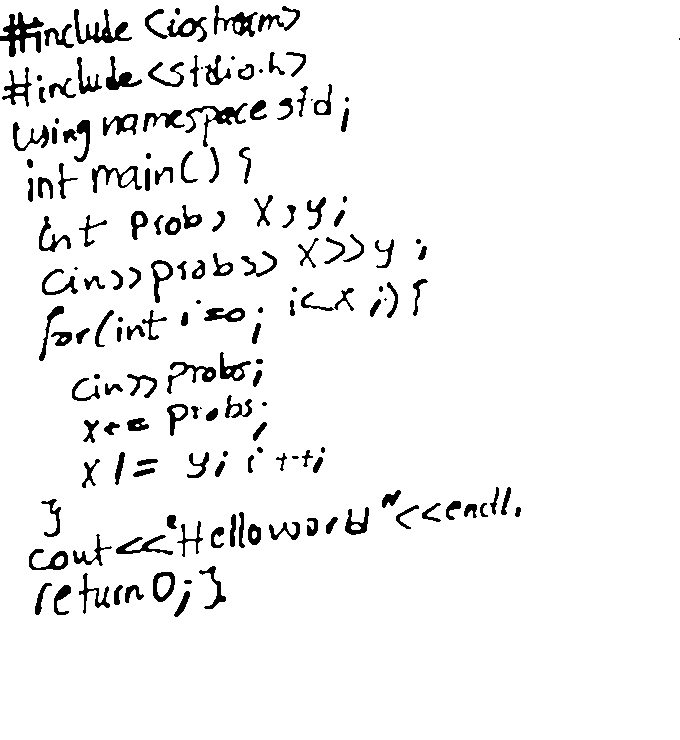 #include <iostream>
#include <stdio.h>
using namespace std;
int main() {
int prob, x, y;
cin>>probs>> x>>y;
for(int i=0; i<x;) {
cin>> probs;
x+= probs;
x /= y; i++;
}
cout<<"Helloworld"<<endl.
return 0; }